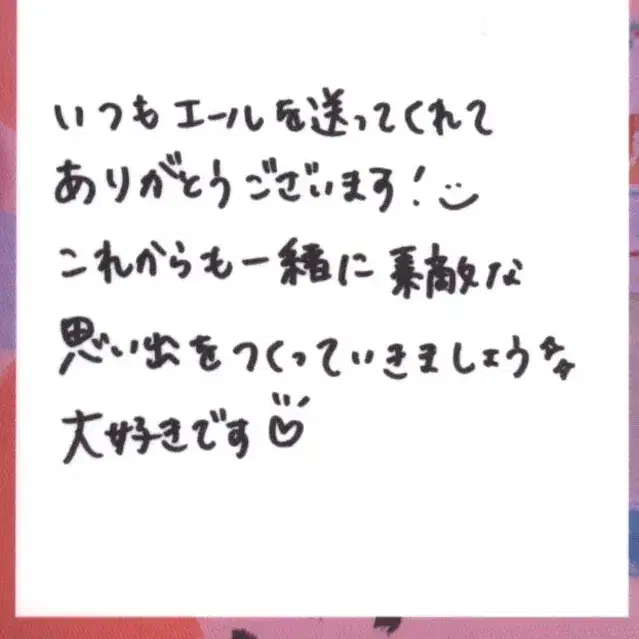 いつもエールを送ってくれて
ありがとうございます!
これからも一緒に素敵な
思い出をつくっていきましょう
大好きです♡